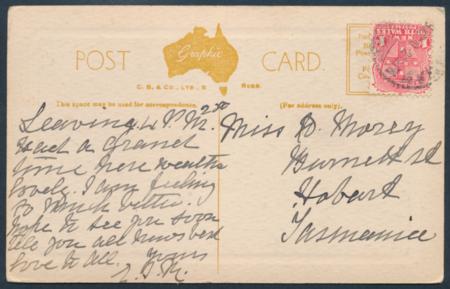 POST
Graphic
CARD.
C. B. & CO., LTD., S
REGD.
This space may be used for correspondence.
(For address only).
NEW SOUTH WALES
Leaving 4 P.M.
Had a Grand
time here weather
lovely. I am feeling
so much better.
Hope to see you soon
tell you all news best
love to all. Yours
Miss D.
Burnett St
Hobart
Tasmania